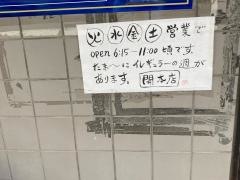 火水金土営業で
open 6:15~11:00頃です
たま〜にイレギュラーの週が
あります。開本店